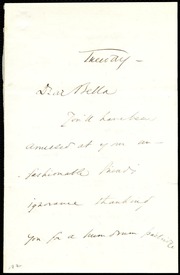 Tuesday –
Dear Bella
You'd have been
amused at your un-
fashionable friends
ignorance thanking
you for a hum drum